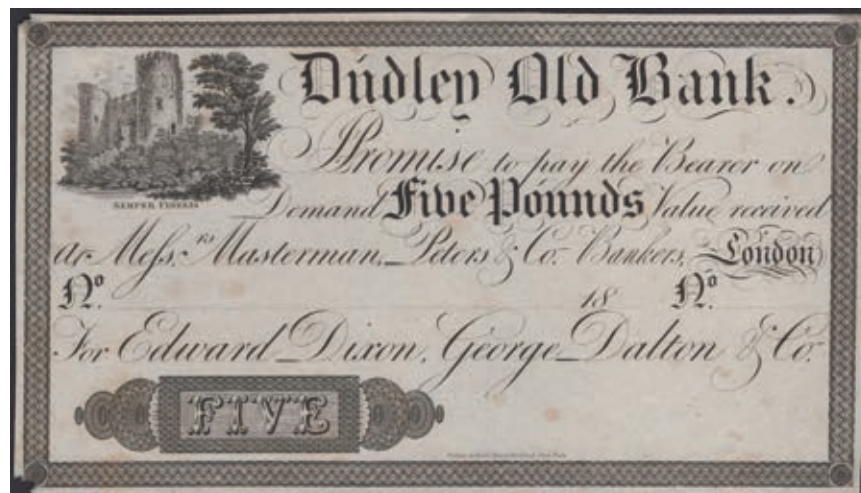 Dudley Old Bank.
Promise to pay the Bearer on
SEMPER FIDELIS
Demand Five Pounds Value received
At Mess.rs Masterman, Peters & Co. Bankers, London
No. 18 No.
For Edward Dixon, George Dalton & Co.
FIVE